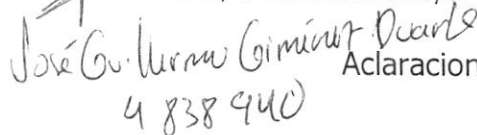 José Guillermo Giménez Duarte
Aclaracion
4 838 940